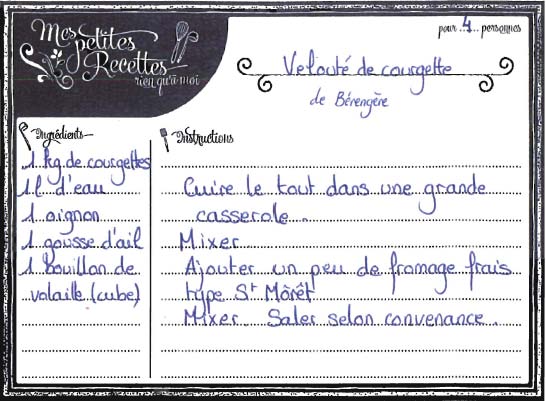 Mes petites Recettes
rien qu'à moi
pour 4 personnes
Velouté de courgette
de Bérengère
Ingrédients
1 kg de courgettes
1 l d'eau
1 oignon
1 gousse d'ail
1 bouillon de
volaille (cube)
Instructions
Cuire le tout dans une grande
casserole.
Mixer
Ajouter un peu de fromage frais
type St Môrèt
Mixer Saler selon convenance.